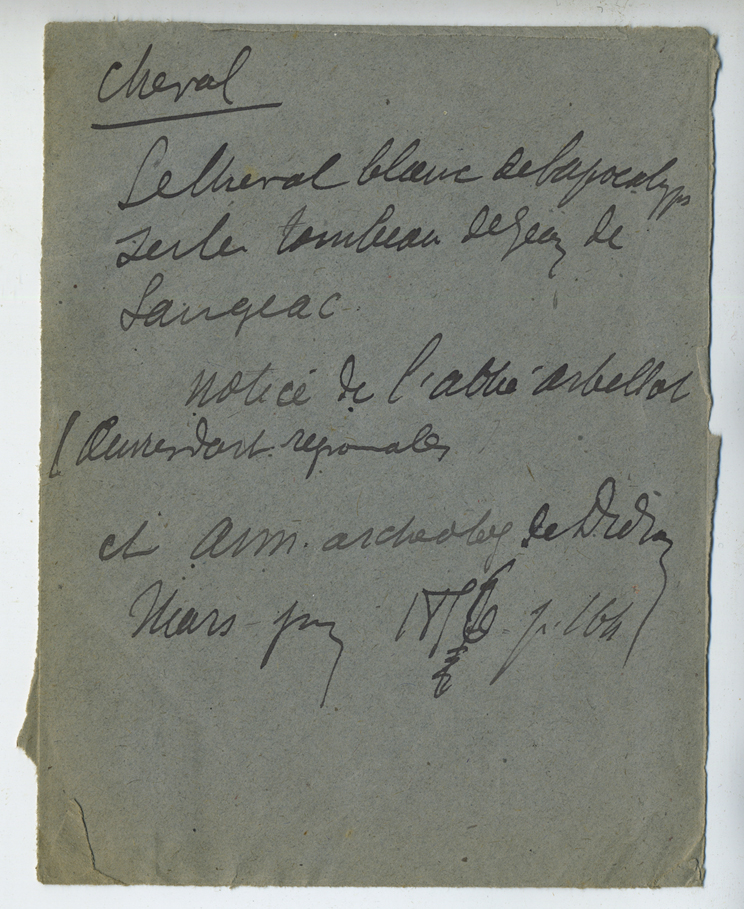 Cheval
Le Cheval blanc de l'apocalyps
sur le tombeau de Jean de
Langeac
notice de l'abbé arbellot
( Œuvres d'art regionales
et ann. archeolog de Didron
Mars - juin p. 164